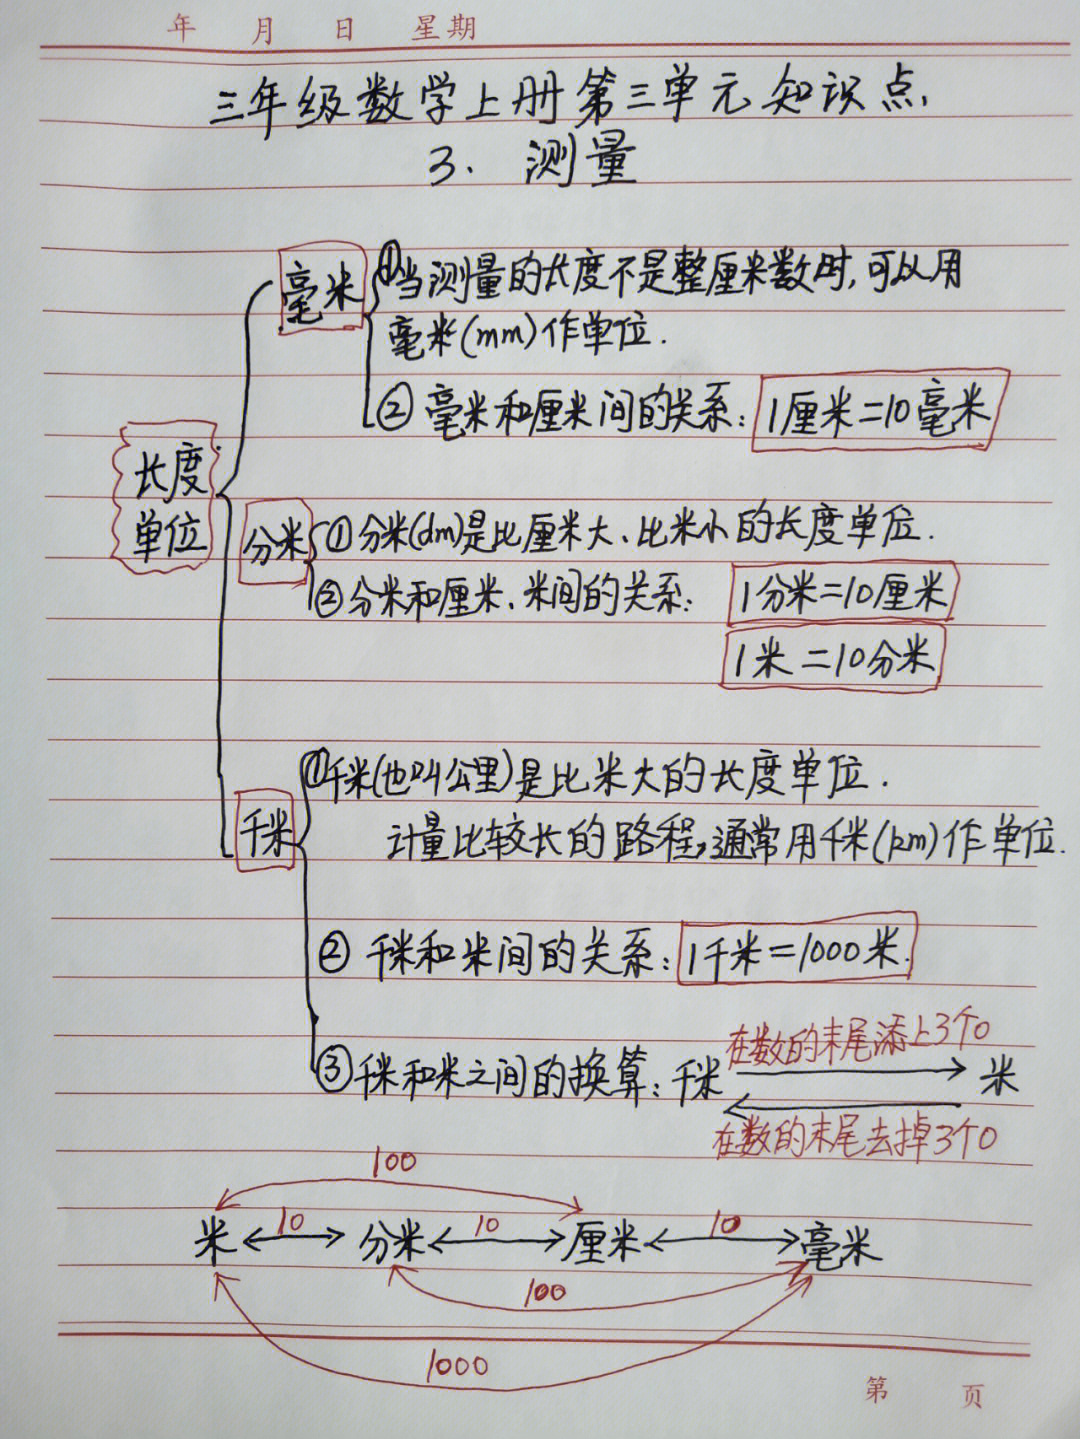 年 月 日 星期
三年级数学上册第三单元知识点.
3. 测量
毫米
①当测量的长度不是整厘米数时,可以用
毫米(mm)作单位.
②毫米和厘米间的关系: 1厘米=10毫米
长度
单位
分米
①分米(dm)是比厘米大、比米小的长度单位.
②分米和厘米、米间的关系: 1分米=10厘米
1米=10分米
千米
①千米(也叫公里)是比米大的长度单位.
计量比较长的路程,通常用千米(km)作单位.
②千米和米间的关系: 1千米=1000米.
在数的末尾添上3个0
③千米和米之间的换算: 千米 米
在数的末尾去掉3个0
100
米 10 分米 10 厘米 10 毫米
100
1000
第 页